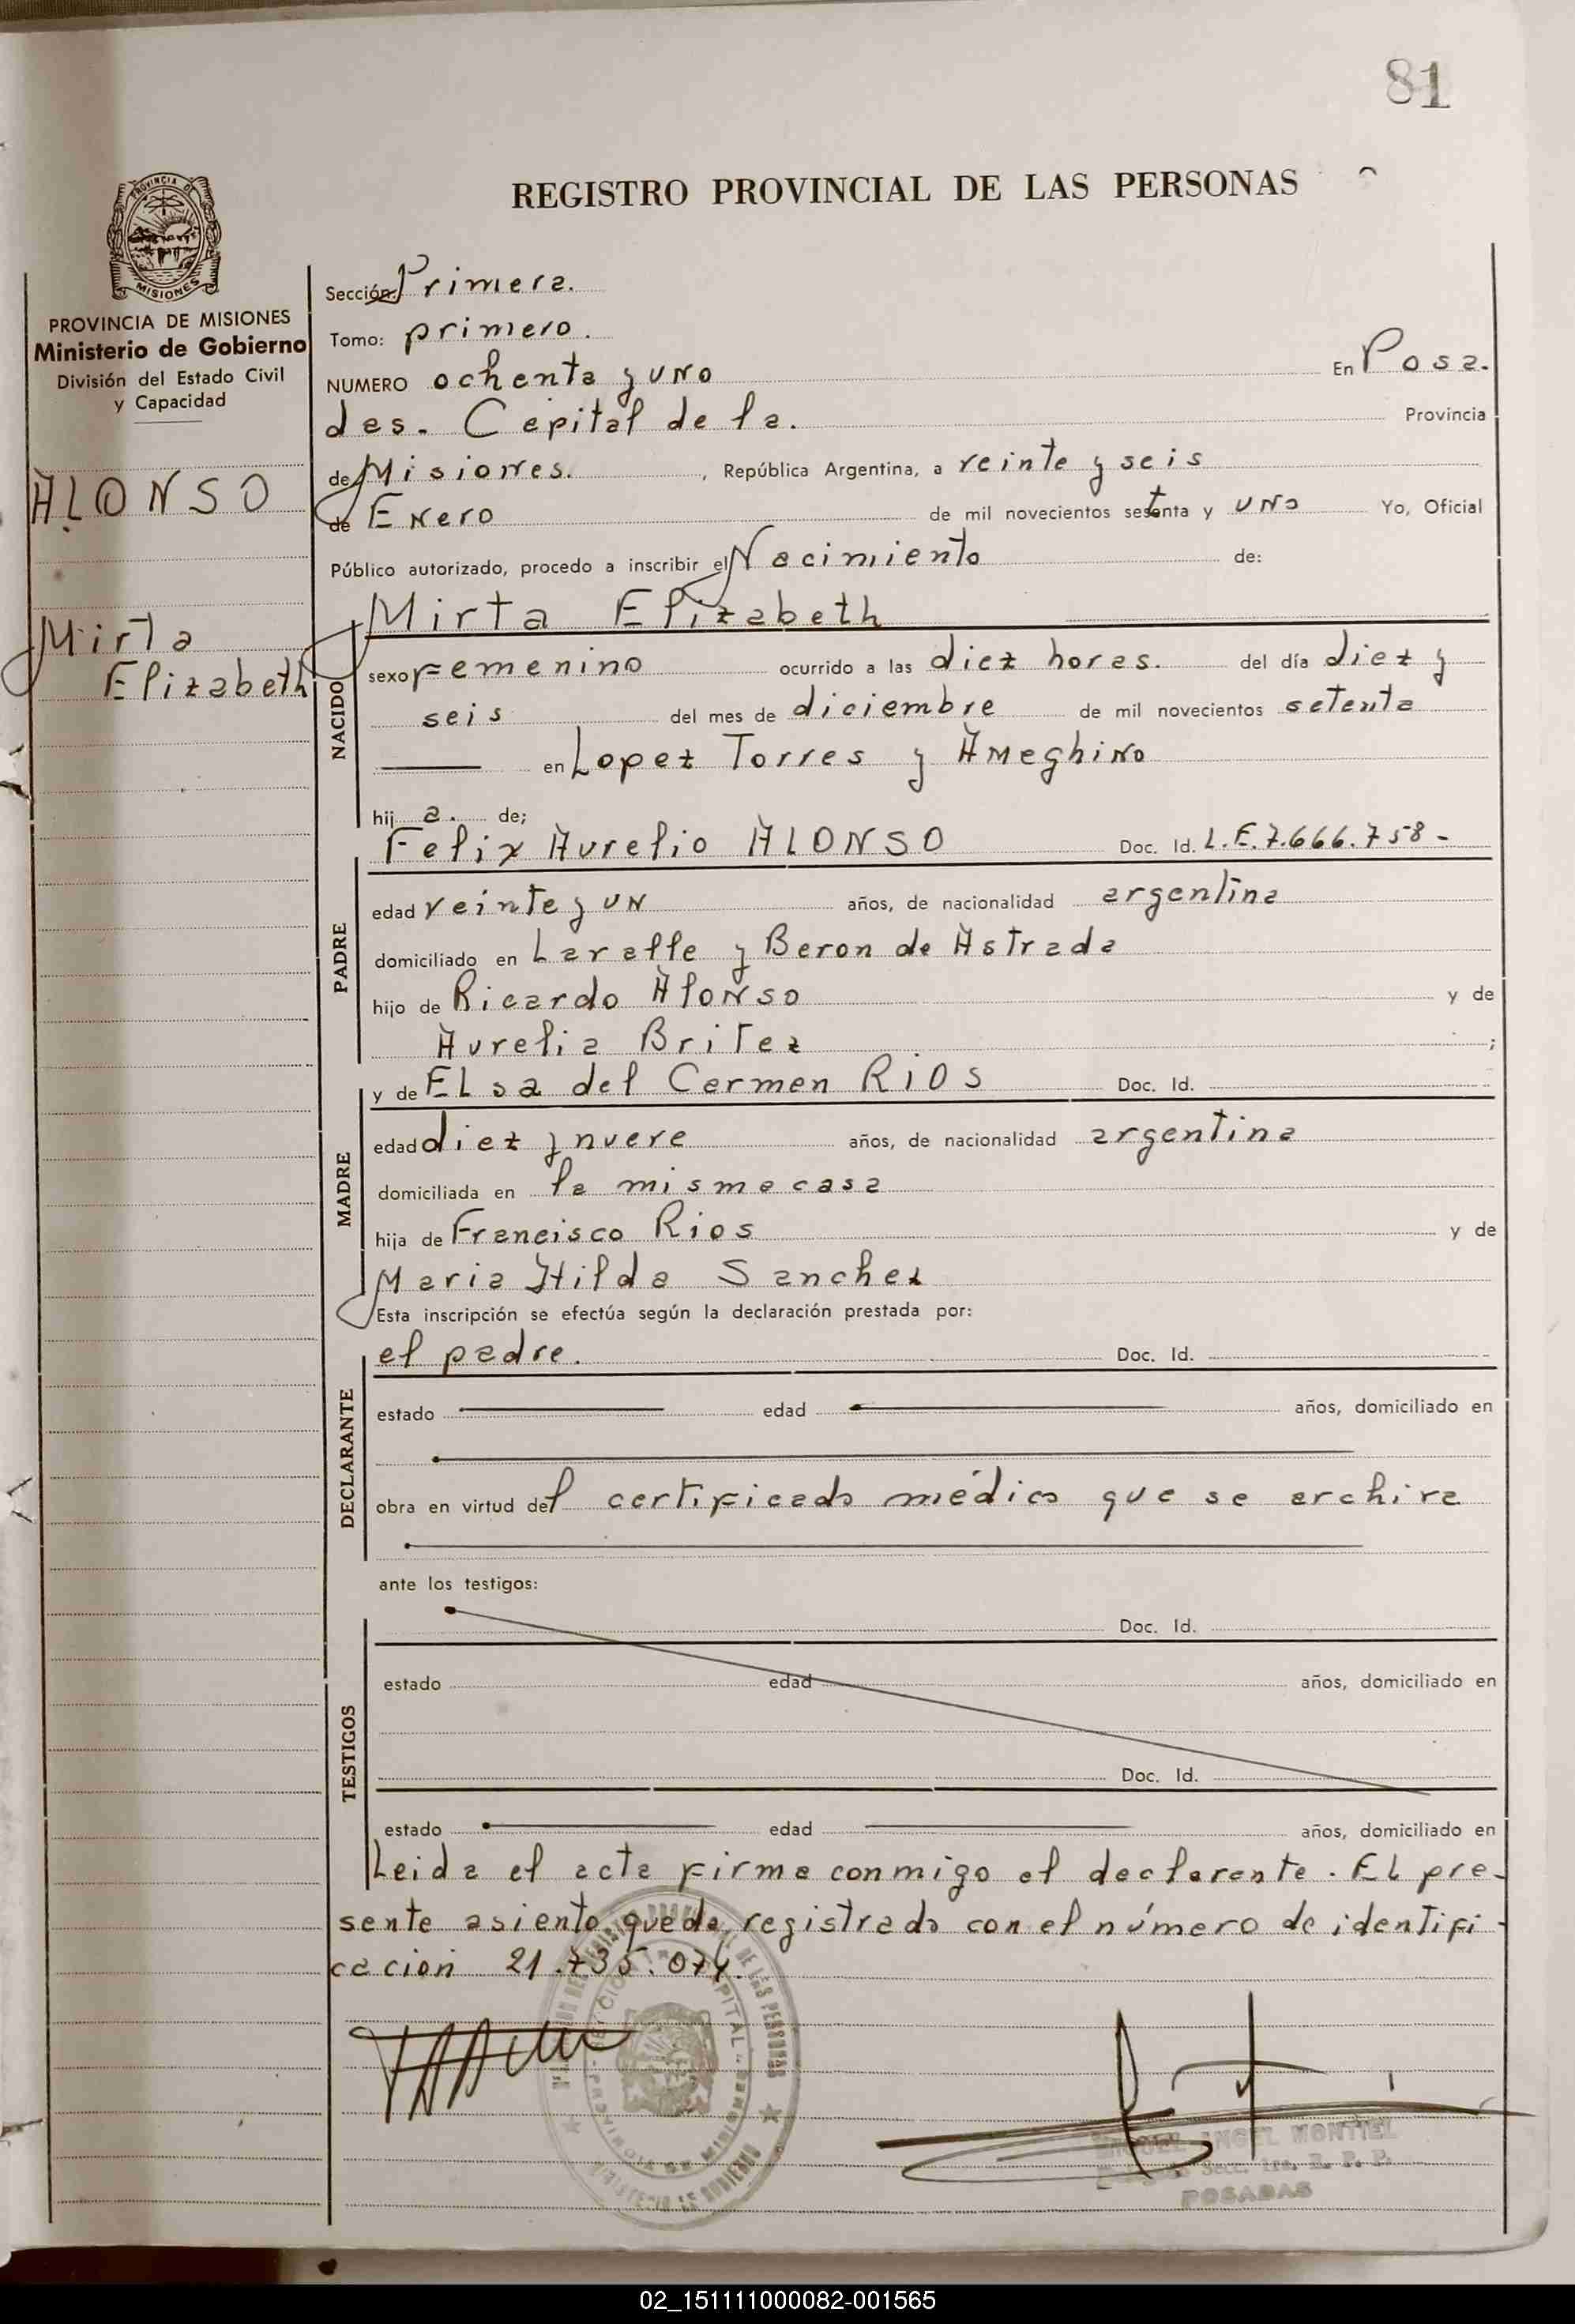 81
REGISTRO PROVINCIAL DE LAS PERSONAS
PROVINCIA DE
MISIONES
PROVINCIA DE MISIONES
Ministerio de Gobierno
División del Estado Civil
y Capacidad
ALONSO
Mirta
Elizabeth
Sección: Primera.
Tomo: primero.
NUMERO ochenta y uno En Posa-
das. Capital de la. Provincia
de Misiones. , República Argentina, a veinte y seis
de Enero de mil novecientos setenta y uno Yo, Oficial
Público autorizado, procedo a inscribir el Nacimiento de:
Mirta Elizabeth
NACIDO
sexo Femenino ocurrido a las diez horas. del día diez y
seis del mes de diciembre de mil novecientos setenta
en Lopez Torres y Ameghino
hij a. de;
Felix Aurelio ALONSO Doc. Id. L.E.7.666.758-
PADRE
edad veinte y un años, de nacionalidad argentina
domiciliado en Lavalle y Beron de Astrada
hijo de Ricardo Alonso y de
Aurelia Britez ;
y de Elsa del Carmen RIOS Doc. Id.
MADRE
edad diez y nueve años, de nacionalidad argentina
domiciliada en la misma casa
hija de Francisco Rios y de
Maria Hilda Sanchez
Esta inscripción se efectúa según la declaración prestada por:
el padre. Doc. Id.
DECLARANTE
estado edad años, domiciliado en
obra en virtud del certificado médico que se archiva
ante los testigos:
Doc. Id.
TESTIGOS
estado edad años, domiciliado en
Doc. Id.
estado edad años, domiciliado en
Leida el acta firma conmigo el declarante. El pre-
sente asiento queda registrado con el número de identifi-
cación 21.735.074.
ANGEL MONTIEL
Secc. 1ra. R. P. P.
POSADAS
02_151111000082-001565